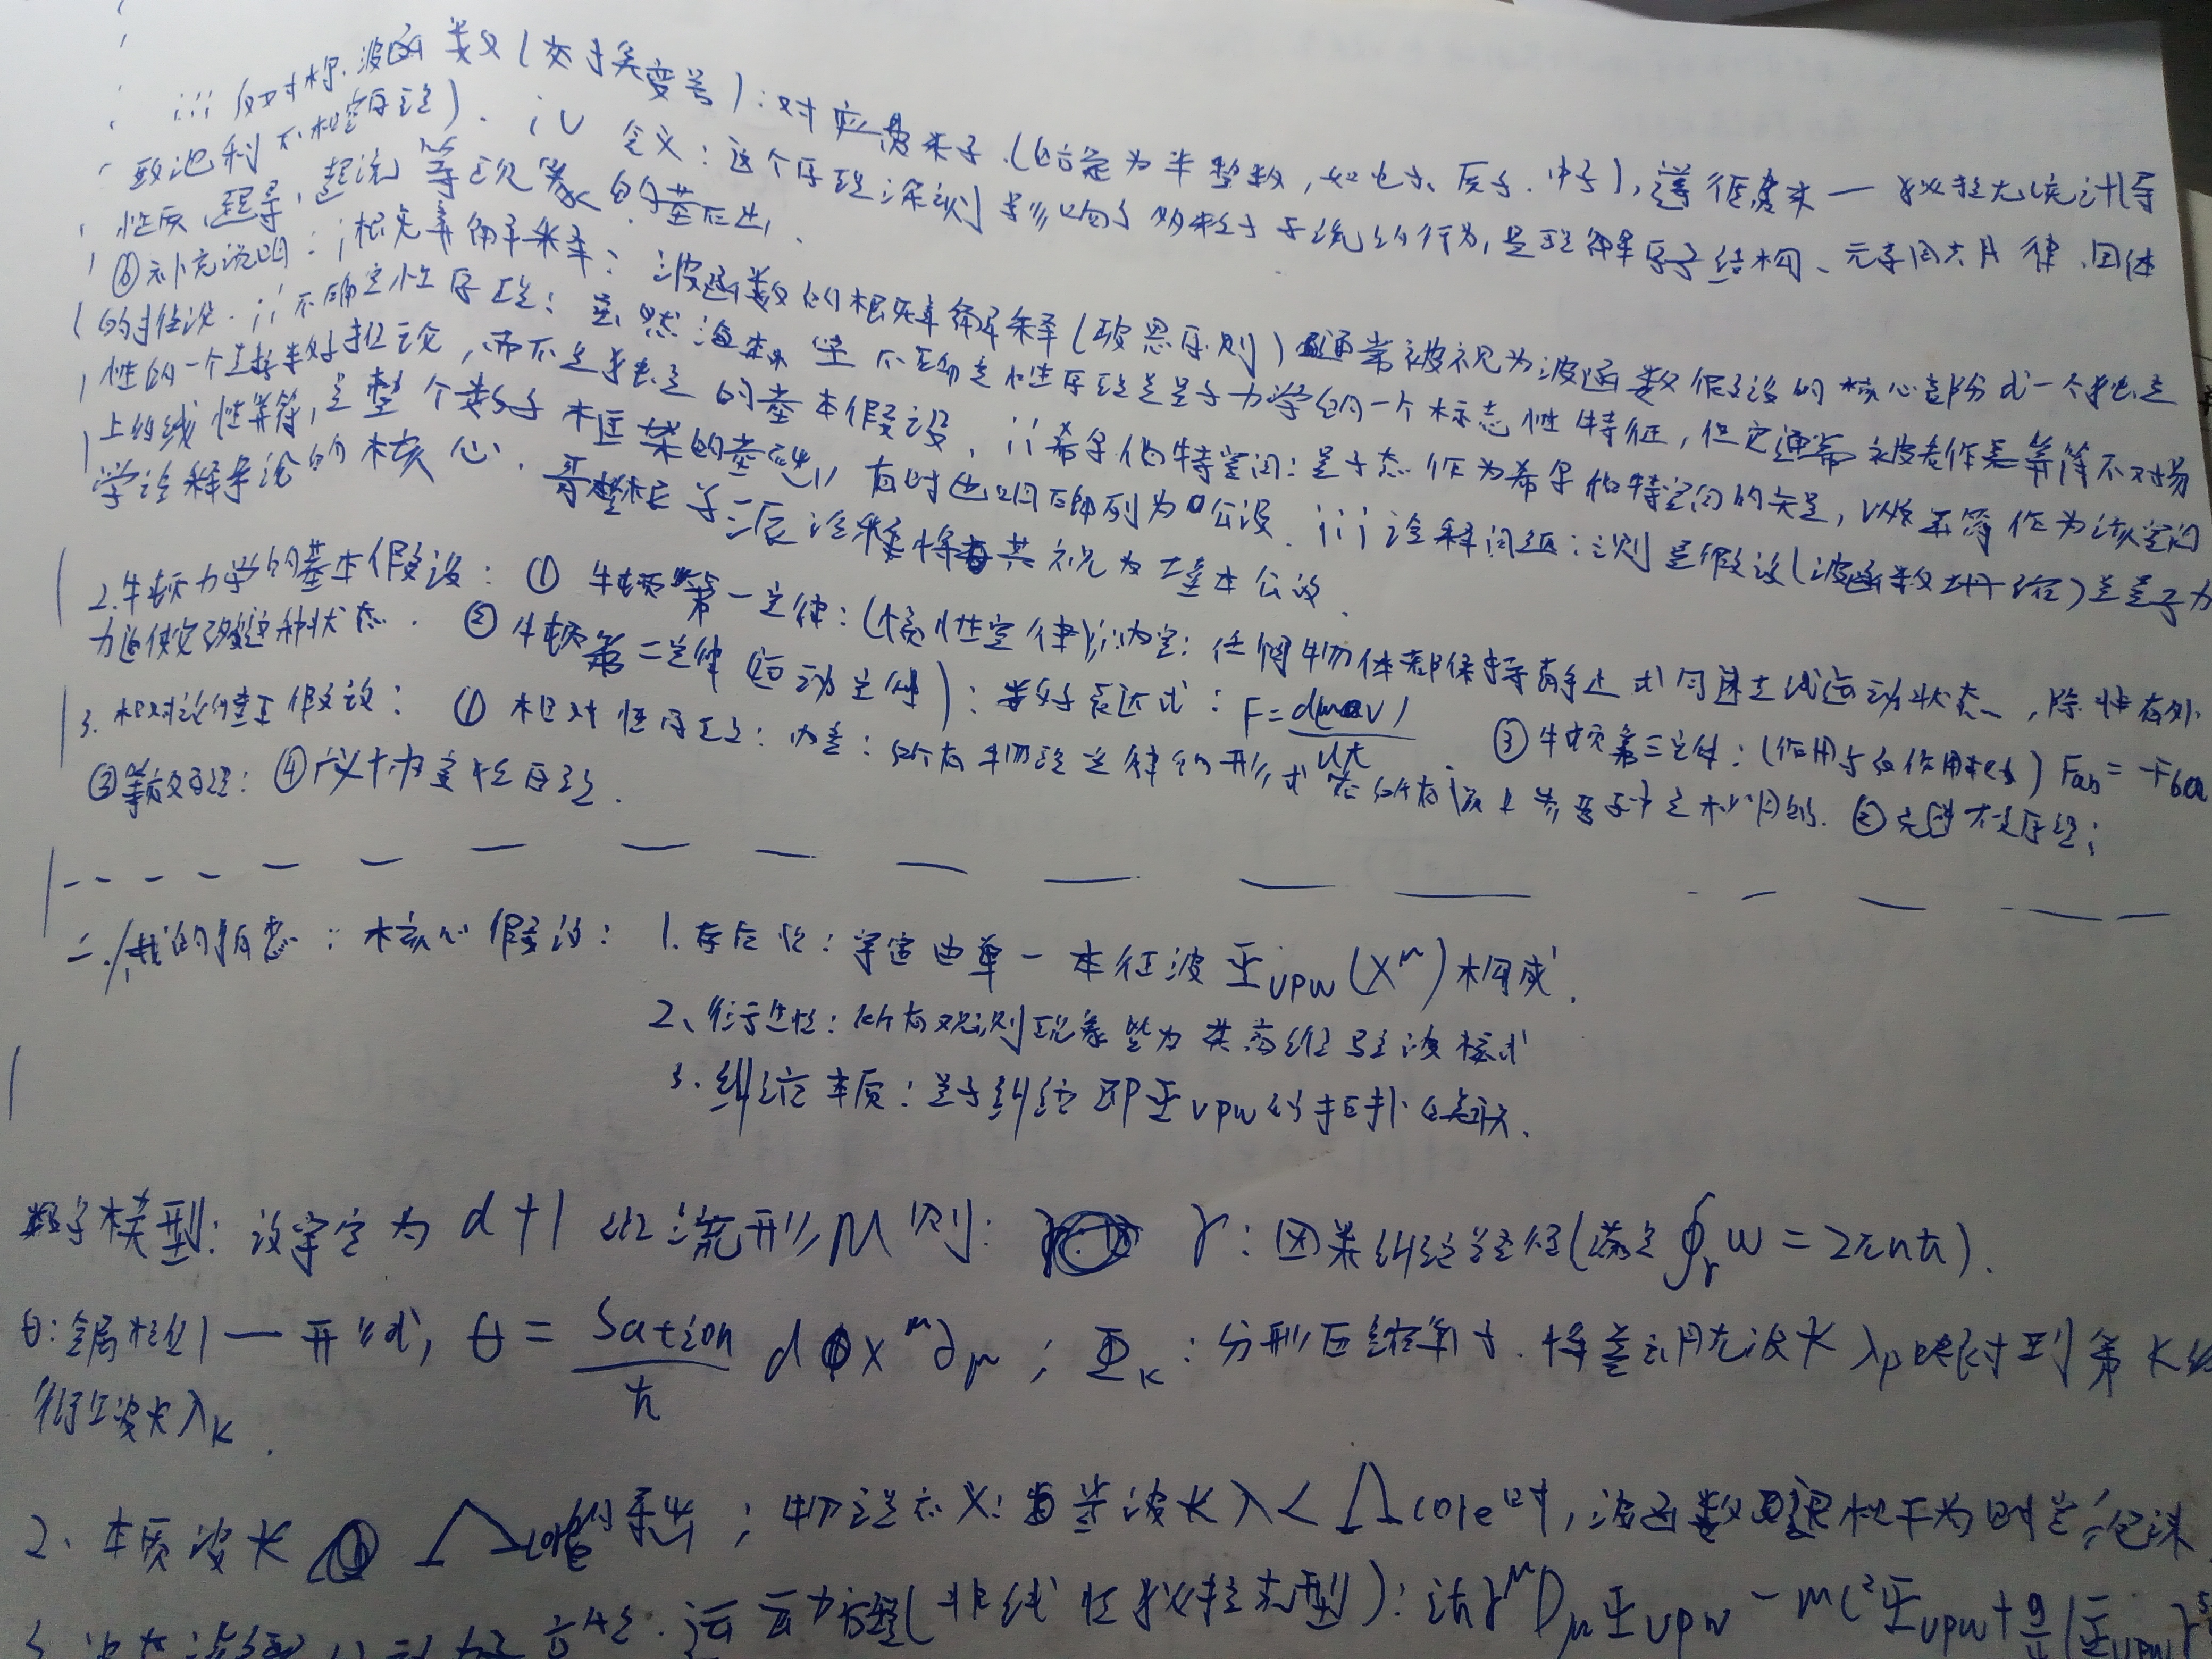 iii 反对称波函数(交换变号):对应费米子(自旋为半整数,如电子、质子、中子),遵循费米一狄拉克统计(导
致泡利不相容原理). iv 含义:这个原理深刻影响了多粒子系统的行为,是理解原子结构、元素周期律、固体
性质、超导、超流等现象的基础.
⑥补充说明:i概率解释:波函数的概率解释(玻恩原则)通常被视为波函数假设的核心部分或一个独立
的假设. ii不确定性原理:虽然海森堡不确定性原理是量子力学的一个标志性特征,但它通常被看作是算符不对易
性的一个直接数学推论,而不是独立的基本假设. ii希尔伯特空间:量子态作为希尔伯特空间的矢量,以及算符作为该空间
上的线性算符,是整个数学框架的基础,有时也明确列为公设. iii诠释问题:测量假设(波函数坍缩)是量子力
学诠释争论的核心. 哥本哈根学派诠释将其视为基本公设.
2.牛顿力学的基本假设:①牛顿第一定律:(惯性定律)i内容:任何物体都保持静止或匀速直线运动状态,除非有外
力迫使它改变这种状态. ②牛顿第二定律(运动定律):数学表达式:F=d(mv)/dt. ③牛顿第三定律:(作用与反作用) Fab=-Fba
3.相对论的基本假设:①相对性原理:内容:所有物理定律的形式在所有惯性参考系中是相同的. ②光速不变原理;
③等效原理:④广义协变性原理.
二.我的构想:核心假设:1.存在性:宇宙由单一本征波Ψupw(X^μ)构成.
2、衍生性:所有观测现象皆为其高维驻波模式
3.纠缠本质:量子纠缠即Ψupw的拓扑自关联.
数学模型:设宇宙为d+1维流形M则: γ:因果纠缠路径(满足∮γ ω=2πnħ).
θ:全局相位1一形式,θ=Sation/ħ dx^μ∂μ;Φk:分形压缩算子.将普朗克波长λp映射到第K级
衍生波长λk.
2、本质波长 Λcore的导出;物理意义:当波长λ<Λcore时,波函数退相干为时空泡沫
运动方程(非线性狄拉克型):iħγ^μDμΨupw-mc²Ψupw+g/4(Ψ̄upwγ^5